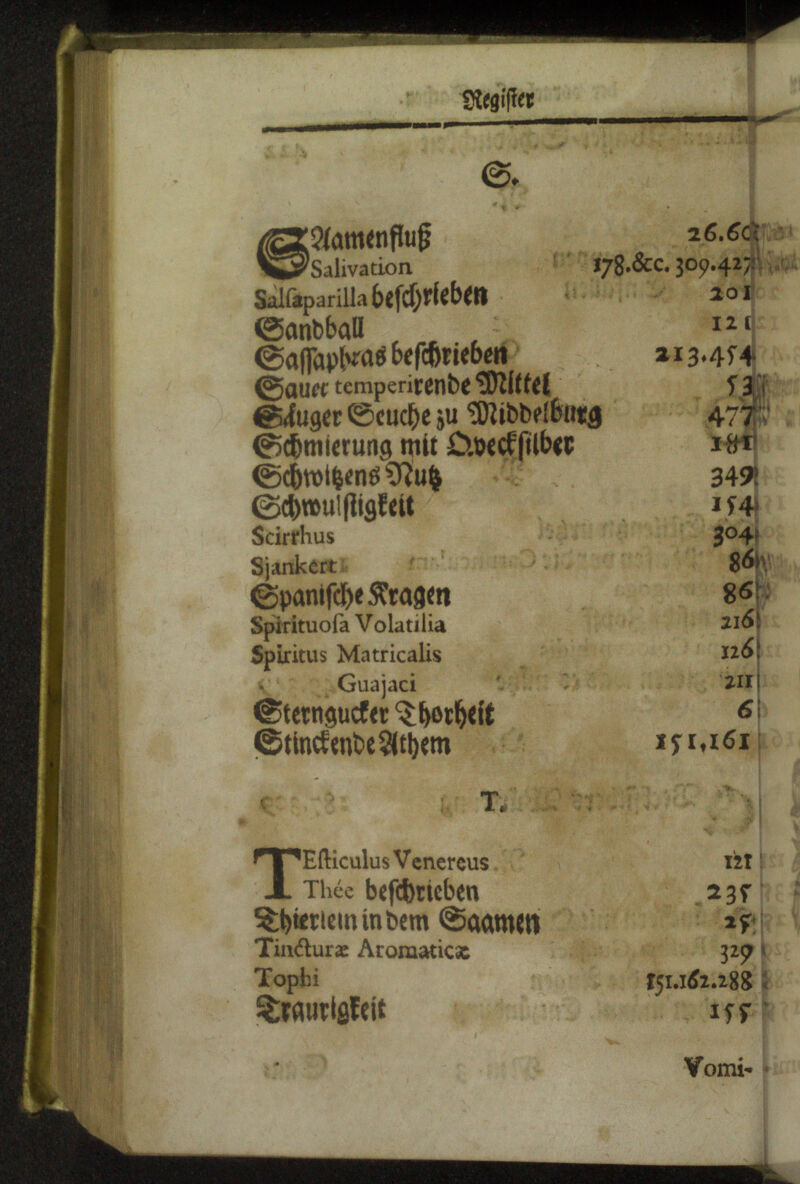 Register
S.
SAamenfluß 26.60
Salivation 178.&c. 309.427
Salsaparilla beschrieben 201
Sandball 121
Sassaphras beschrieben 213.454
Sauer temperirende Mittel 53
Säuger Seuche zu Middelburg 477
Schmierung mit Qvecksilber 181
Schwitzens Nutz 349
Schwulstigkeit 154
Scirrhus 304
Sjankert 86
Spanische Kragen 86
Spirituosa Volatilia 216
Spiritus Matricalis 126
Guajaci 211
Sterngucker Thorheit 6
Stinckende Athem 151,161
T.
TEsticulus Venereus 121
Thée beschrieben 235
Thierlein in dem Saamen 25
Tincturæ Aromaticæ 329
Tophi 151.162.288
Traurigkeit 155
Vomi-